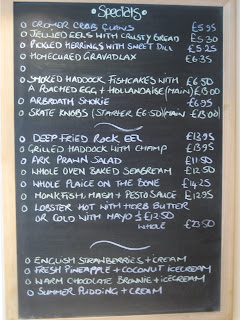 Specials
o CROMER CRAB CLAWS £5.95
o JELLIED EELS WITH CRUSTY BREAD £5.30
o PICKLED HERRINGS WITH SWEET DILL £5.25
o HOMECURED GRAVADLAX £6.35
o SMOKED HADDOCK FISHCAKES WITH £6.50
A POACHED EGG + HOLLANDAISE (MAIN) £13.00
o ARBROATH SMOKIE £6.95
o SKATE KNOBS (STARTER £6.50/MAIN) £13.00
o DEEP FRIED ROCK EEL £13.95
o GRILLED HADDOCK WITH CHAMP £13.95
o ARK PRAWN SALAD £11.50
o WHOLE OVEN BAKED SEABREAM £12.50
o WHOLE PLAICE ON THE BONE £14.25
o MONKFISH, MASH + PESTO SAUCE £12.95
o LOBSTER HOT WITH HERB BUTTER
OR COLD WITH MAYO ½ £12.50
WHOLE £23.50
o ENGLISH STRAWBERRIES + CREAM
o FRESH PINEAPPLE + COCONUT ICECREAM
o WARM CHOCOLATE BROWNIE + ICECREAM
o SUMMER PUDDING + CREAM